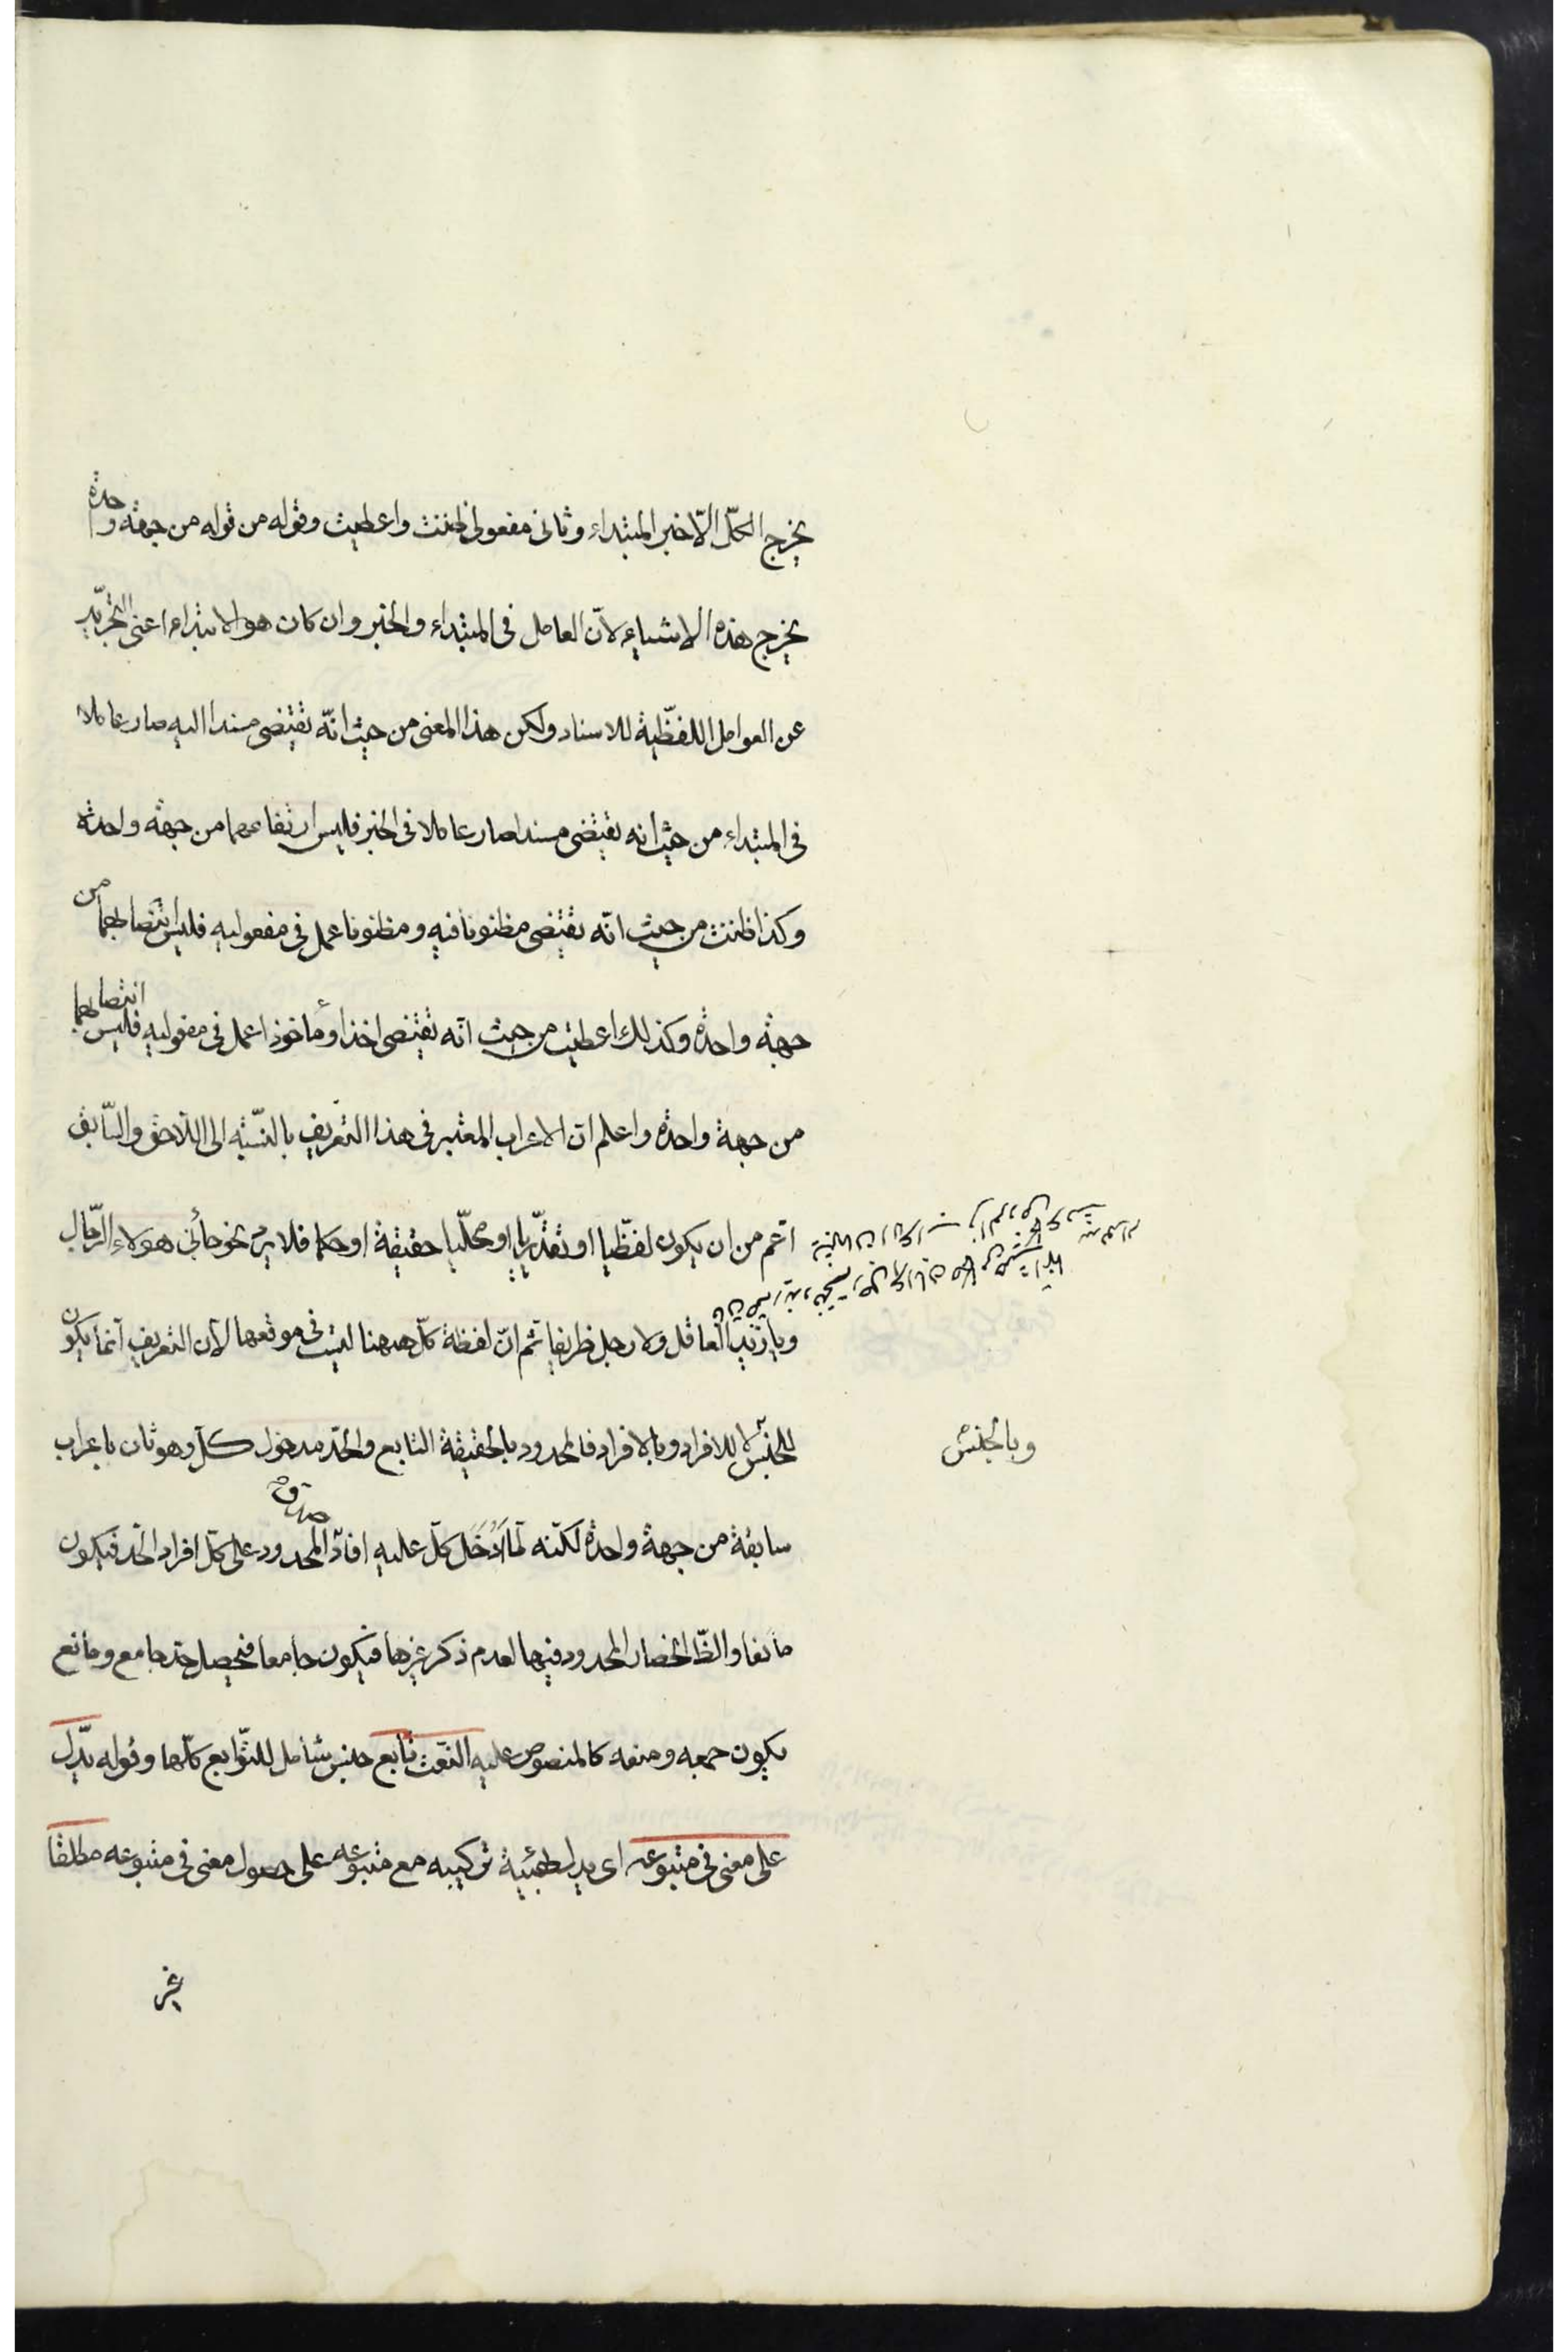 يخرج الكلّ الّا خبر المبتداء وثانى مفعولى ظننت واعطيت وقوله من قوله من جهة واحدة
يخرج هذه الاشياء لانّ العامل فى المبتداء والخبر وان كان هو الابتداء اعنى التجريد
عن العوامل اللفظّية للاسناد ولكن هذا المعنى من حيث انّه يقتضى مسندا اليه صار عاملا
فى المبتداء من حيث انه يقتضى مسندا صار عاملا فى الخبر فليس ارتفاعهما من جهة واحدة
وكذا ظننت من حيث انّه يقتضى مظنونا فيه ومظنونا عمل فى مفعوليه فليس انتصابهما من
جهة واحدة وكذلك اعطيت من حيث انّه يقتضى اخذا ومأخوذا عمل فى مفعوليه فليس انتصابهما
من جهة واحدة واعلم انّ الاعراب المعتبر فى هذا التعريف بالنسبة الى اللّاحق والسّابق
اعّم من ان يكون لفظّيا او تقدّيريا او محلّيا حقيقة او حكما فلا يرد نحو جائنى هولاء الرّجال
ويا زيد العاقل ولا رجل ظريفا ثم انّ لفظة كلّ ههنا ليست فى موقعها لانّ التعريف انّما يكون
للجنس لا للافراد وبالافراد فالمحدود بالحقيقة التابع والحدّ مدخول كلّ وهو ثان باعراب
وبالجنس
سابقة من جهة واحدة لكنّه لمّا ادخل كلّ عليه افاد صدق المحدود على كلّ افراد الحد فيكون
مانعا والظّ انحصار المحدود فيها لعدم ذكر غيرها فيكون جامعا فيحصل حدّ جامع ومانع
يكون جمعه ومنعه كالمنصوص عليه النّعت تابع جنس شامل للتّوابع كلّها وقوله يدّل
على معنى فى متبوعه اى يدل بهيئة تركيبه مع متبوعه على حصول معنى فى متبوعه مطلقا
غير